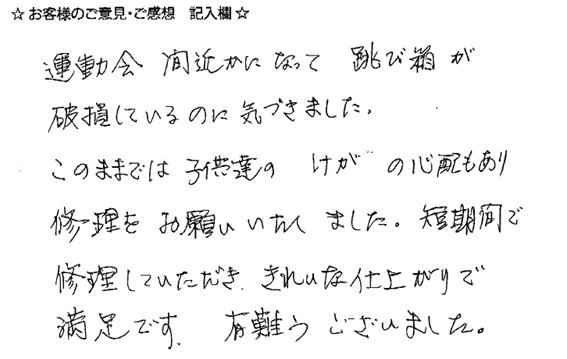 ☆お客様のご意見・ご感想 記入欄☆
運動会 間近かになって 跳び箱が
破損しているのに気づきました。
このままでは子供達の けが の心配もあり
修理をお願いいたしました。短期間で
修理していただき、きれいな仕上がりで
満足です。 有難うございました。